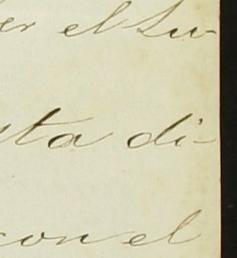 er el Lu-
sta di-
con el